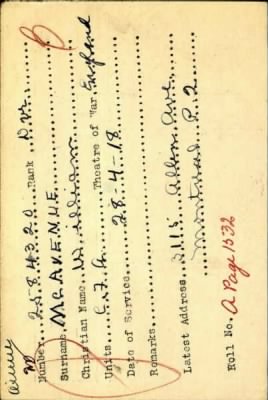 Army
Number 2584320 Rank Dvr. B
Surname McAVENUE
Christian Name William
Units C.F.A. Theatre of War England
Date of Service 28-4-18
Remarks
Latest Address 2115 Avenue
Montreal P.Q.
Roll No. A Page 1532